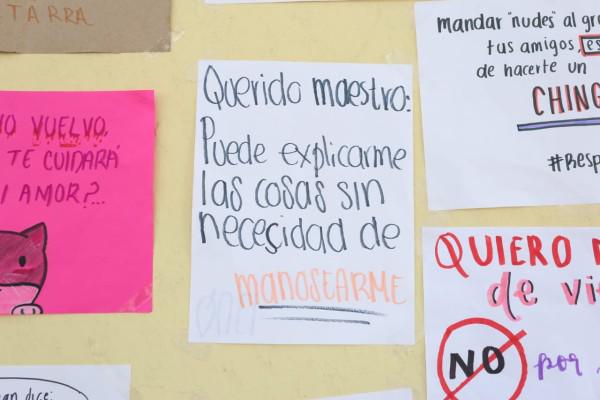 TARRA
NO VUELVO,
TE CUIDARÁ
I AMOR?...
Querido maestro:
Puede explicarme
las cosas sin
necesidad de
MANOSEARME
Mandar "nudes" al gr
tus amigos, es
de hacerte un
CHING
#Resp
QUIERO
de vi
NO por
an dice: